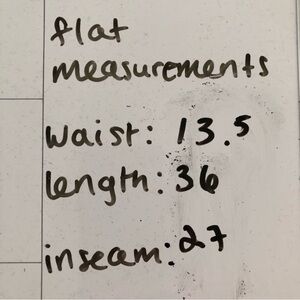 flat
measurements
waist: 13.5
length: 36
inseam: 27